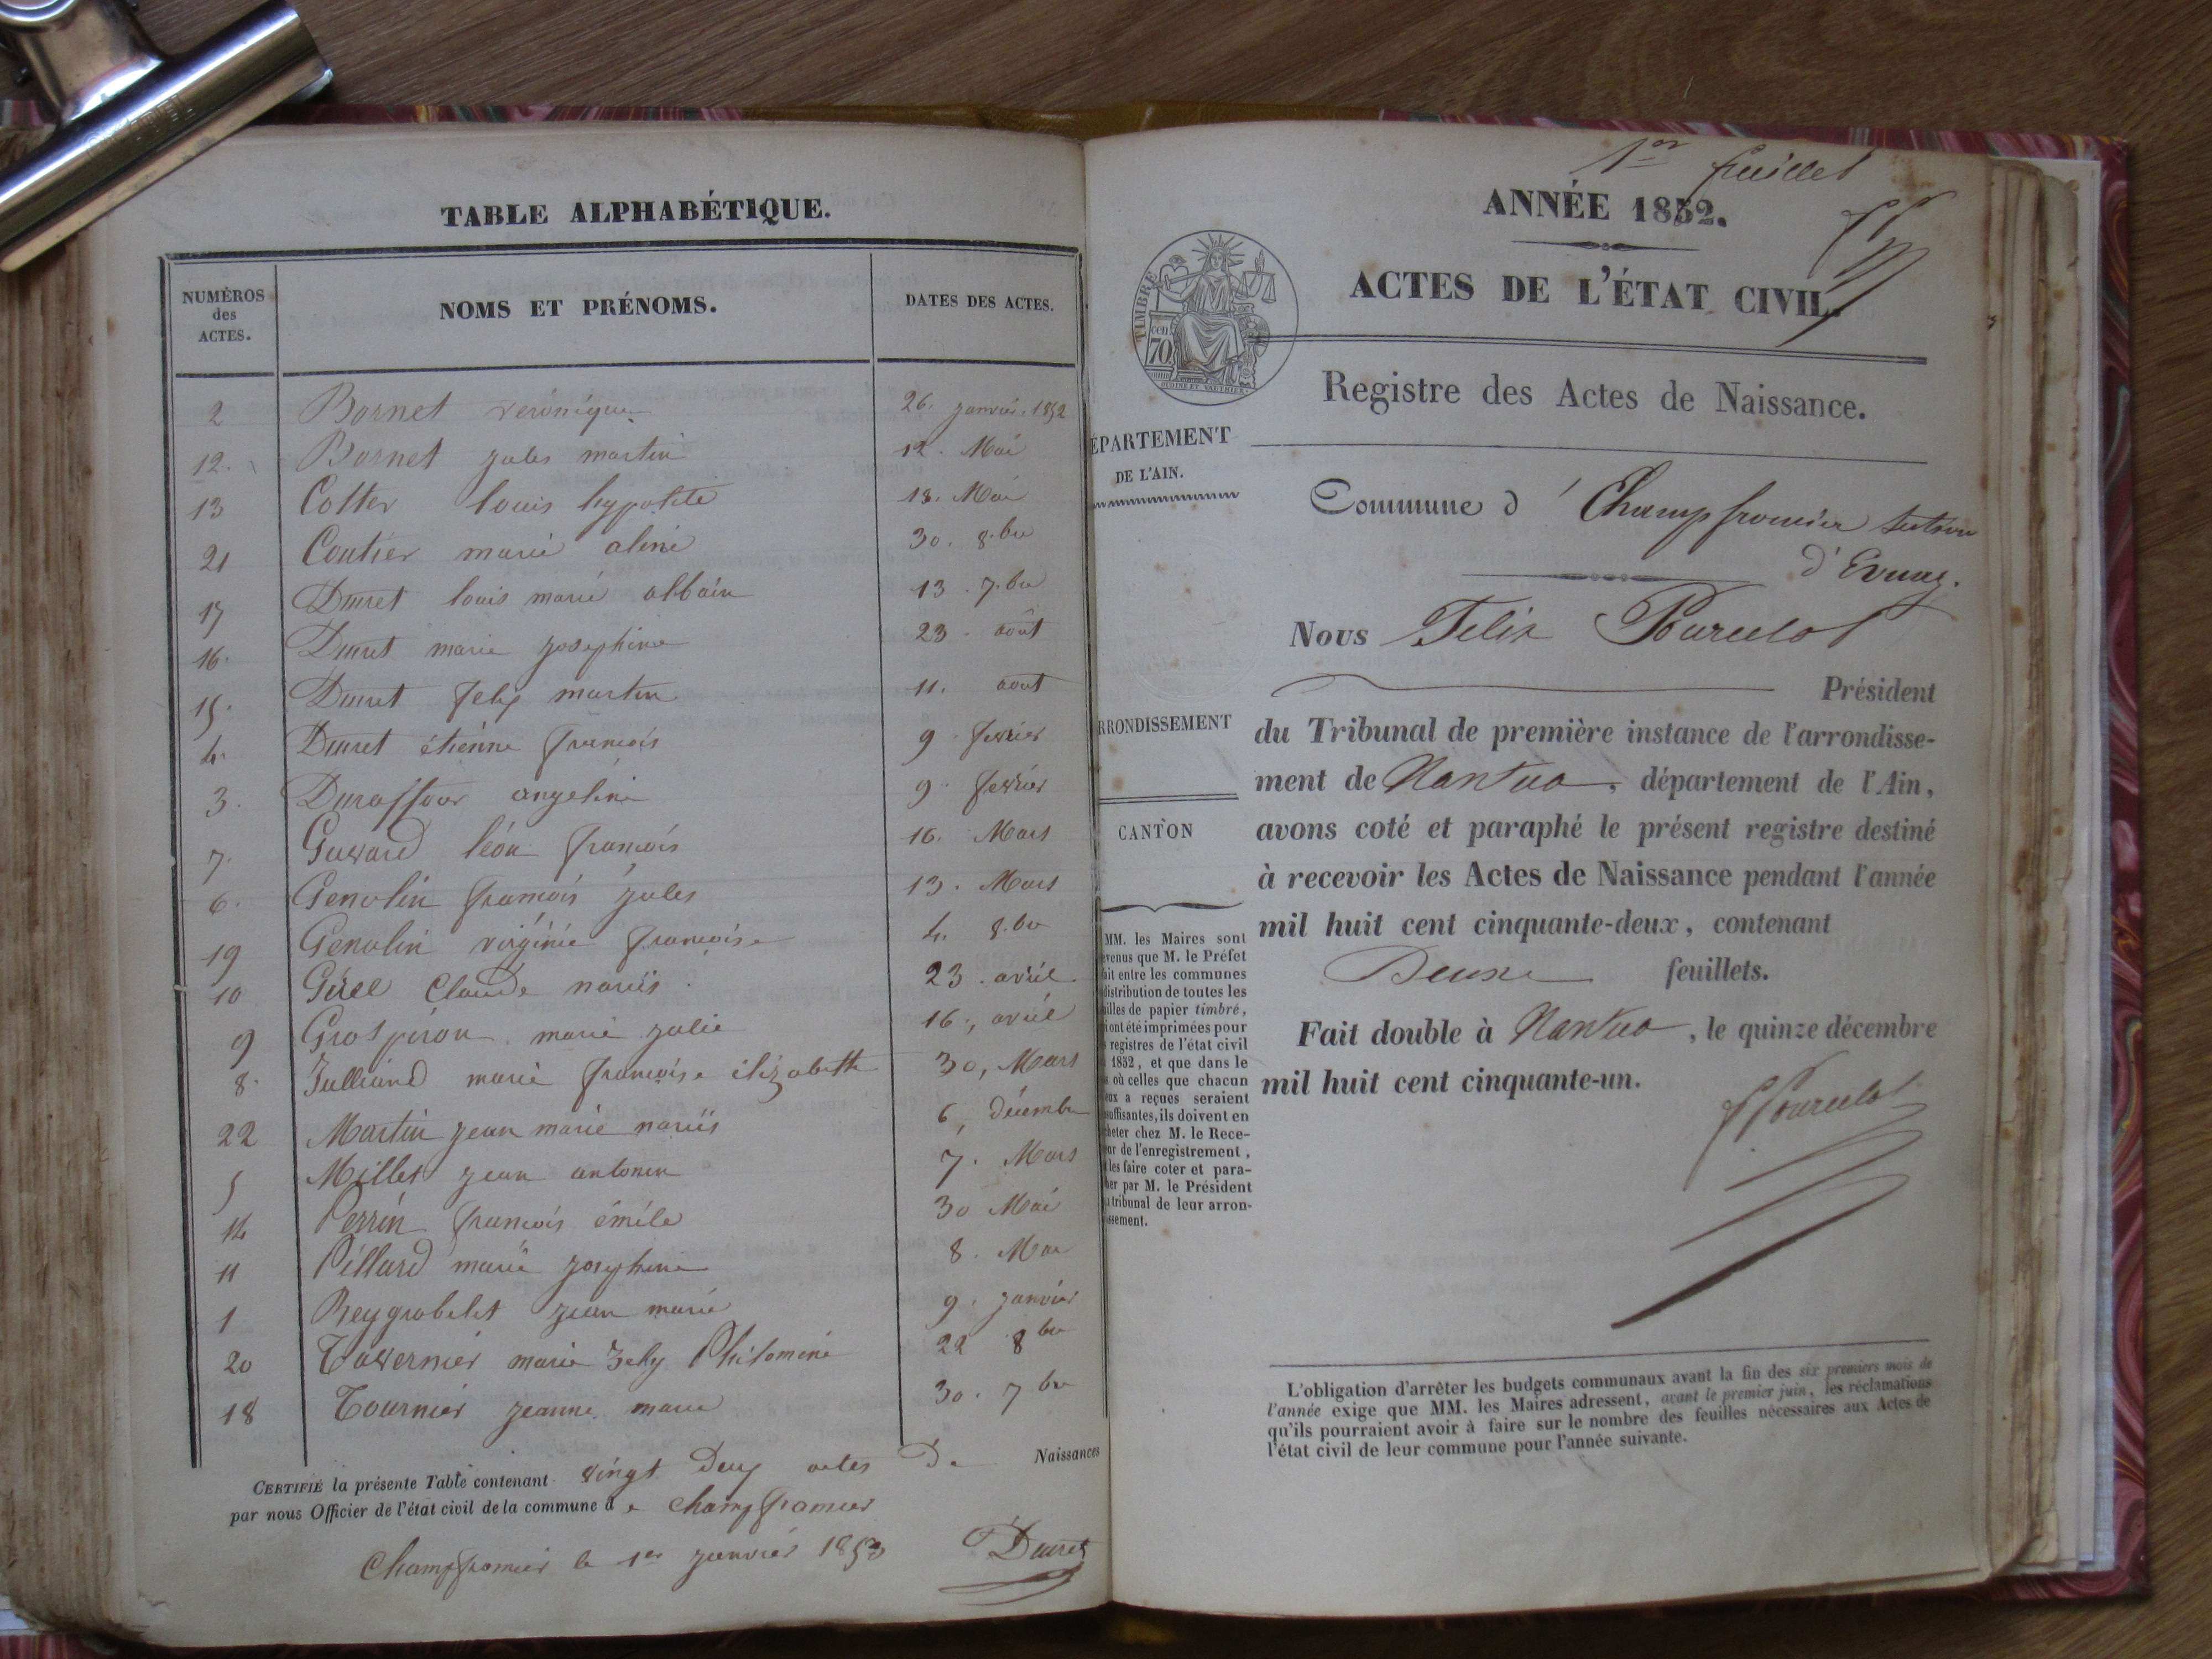 TABLE ALPHABÉTIQUE.
NUMÉROS des ACTES.
NOMS ET PRÉNOMS.
DATES DES ACTES.
2 Bornet veronique 26. janvier. 1852
12. Bornet jules martin 12. Mai
13 Cotter louis hypolite 18. Mai
21 Coutier marie aline 30. 8.bre
17 Ducret louis marie albain 13. 7.bre
16. Ducret marie josephine 23. août
15. Ducret felix martin 11. aout
4. Ducret étienne françois 9 fevrier
3. Duraffour angeline 9 fevrier
7. Guvard léon françois 16. Mars
6. Genolin françois jules 13. Mars
19 Genolin virginie françoise 4. 8.bre
10 Girel Claude 23. avril
9 Grospiron marie julie 16, avril
8. Julliand marie françoise élizabeth 30, Mars
22 Martin jean marie 6, décembre
5 Millet jean antonin 7. Mars
14 Perrin françois émile 30 Mai
11 Pillard marie josephine 8. Mai
1 Reygrobellet jean marie 9. janvier
20 Tavernier marie Zely Philomène 22 8bre
18 Tournier jeanne marie 30. 7bre
CERTIFIÉ la présente Table contenant vingt deux actes De Naissances
par nous Officier de l'état civil de la commune de champfromier
Champfromier le 1er janvier 1853 Ducret
1er feuillet
ANNÉE 1852.
ACTES DE L'ÉTAT CIVIL.
TIMBRE
70 cen.
Registre des Actes de Naissance.
ÉPARTEMENT
DE L'AIN.
Commune d' Champfromier section
d'Evuaz.
NOUS Felix Pourcelot
Président
RRONDISSEMENT
du Tribunal de première instance de l'arrondisse-
ment de Nantua, département de l'Ain,
CANTON
avons coté et paraphé le présent registre destiné
à recevoir les Actes de Naissance pendant l'année
mil huit cent cinquante-deux, contenant
Deux feuillets.
Fait double à Nantua, le quinze décembre
mil huit cent cinquante-un.
FPourcelot
MM. les Maires sont
evenus que M. le Préfet
ait entre les communes
distribution de toutes les
uilles de papier timbré,
i ont été imprimées pour
registres de l'état civil
1852, et que dans le
s où celles que chacun
eux a reçues seraient
suffisantes, ils doivent en
cheter chez M. le Rece-
ur de l'enregistrement,
les faire coter et para-
her par M. le Président
u tribunal de leur arron-
issement.
L'obligation d'arrêter les budgets communaux avant la fin des six premiers mois de
l'année exige que MM. les Maires adressent, avant le premier juin, les réclamations
qu'ils pourraient avoir à faire sur le nombre des feuilles nécessaires aux Actes de
l'état civil de leur commune pour l'année suivante.